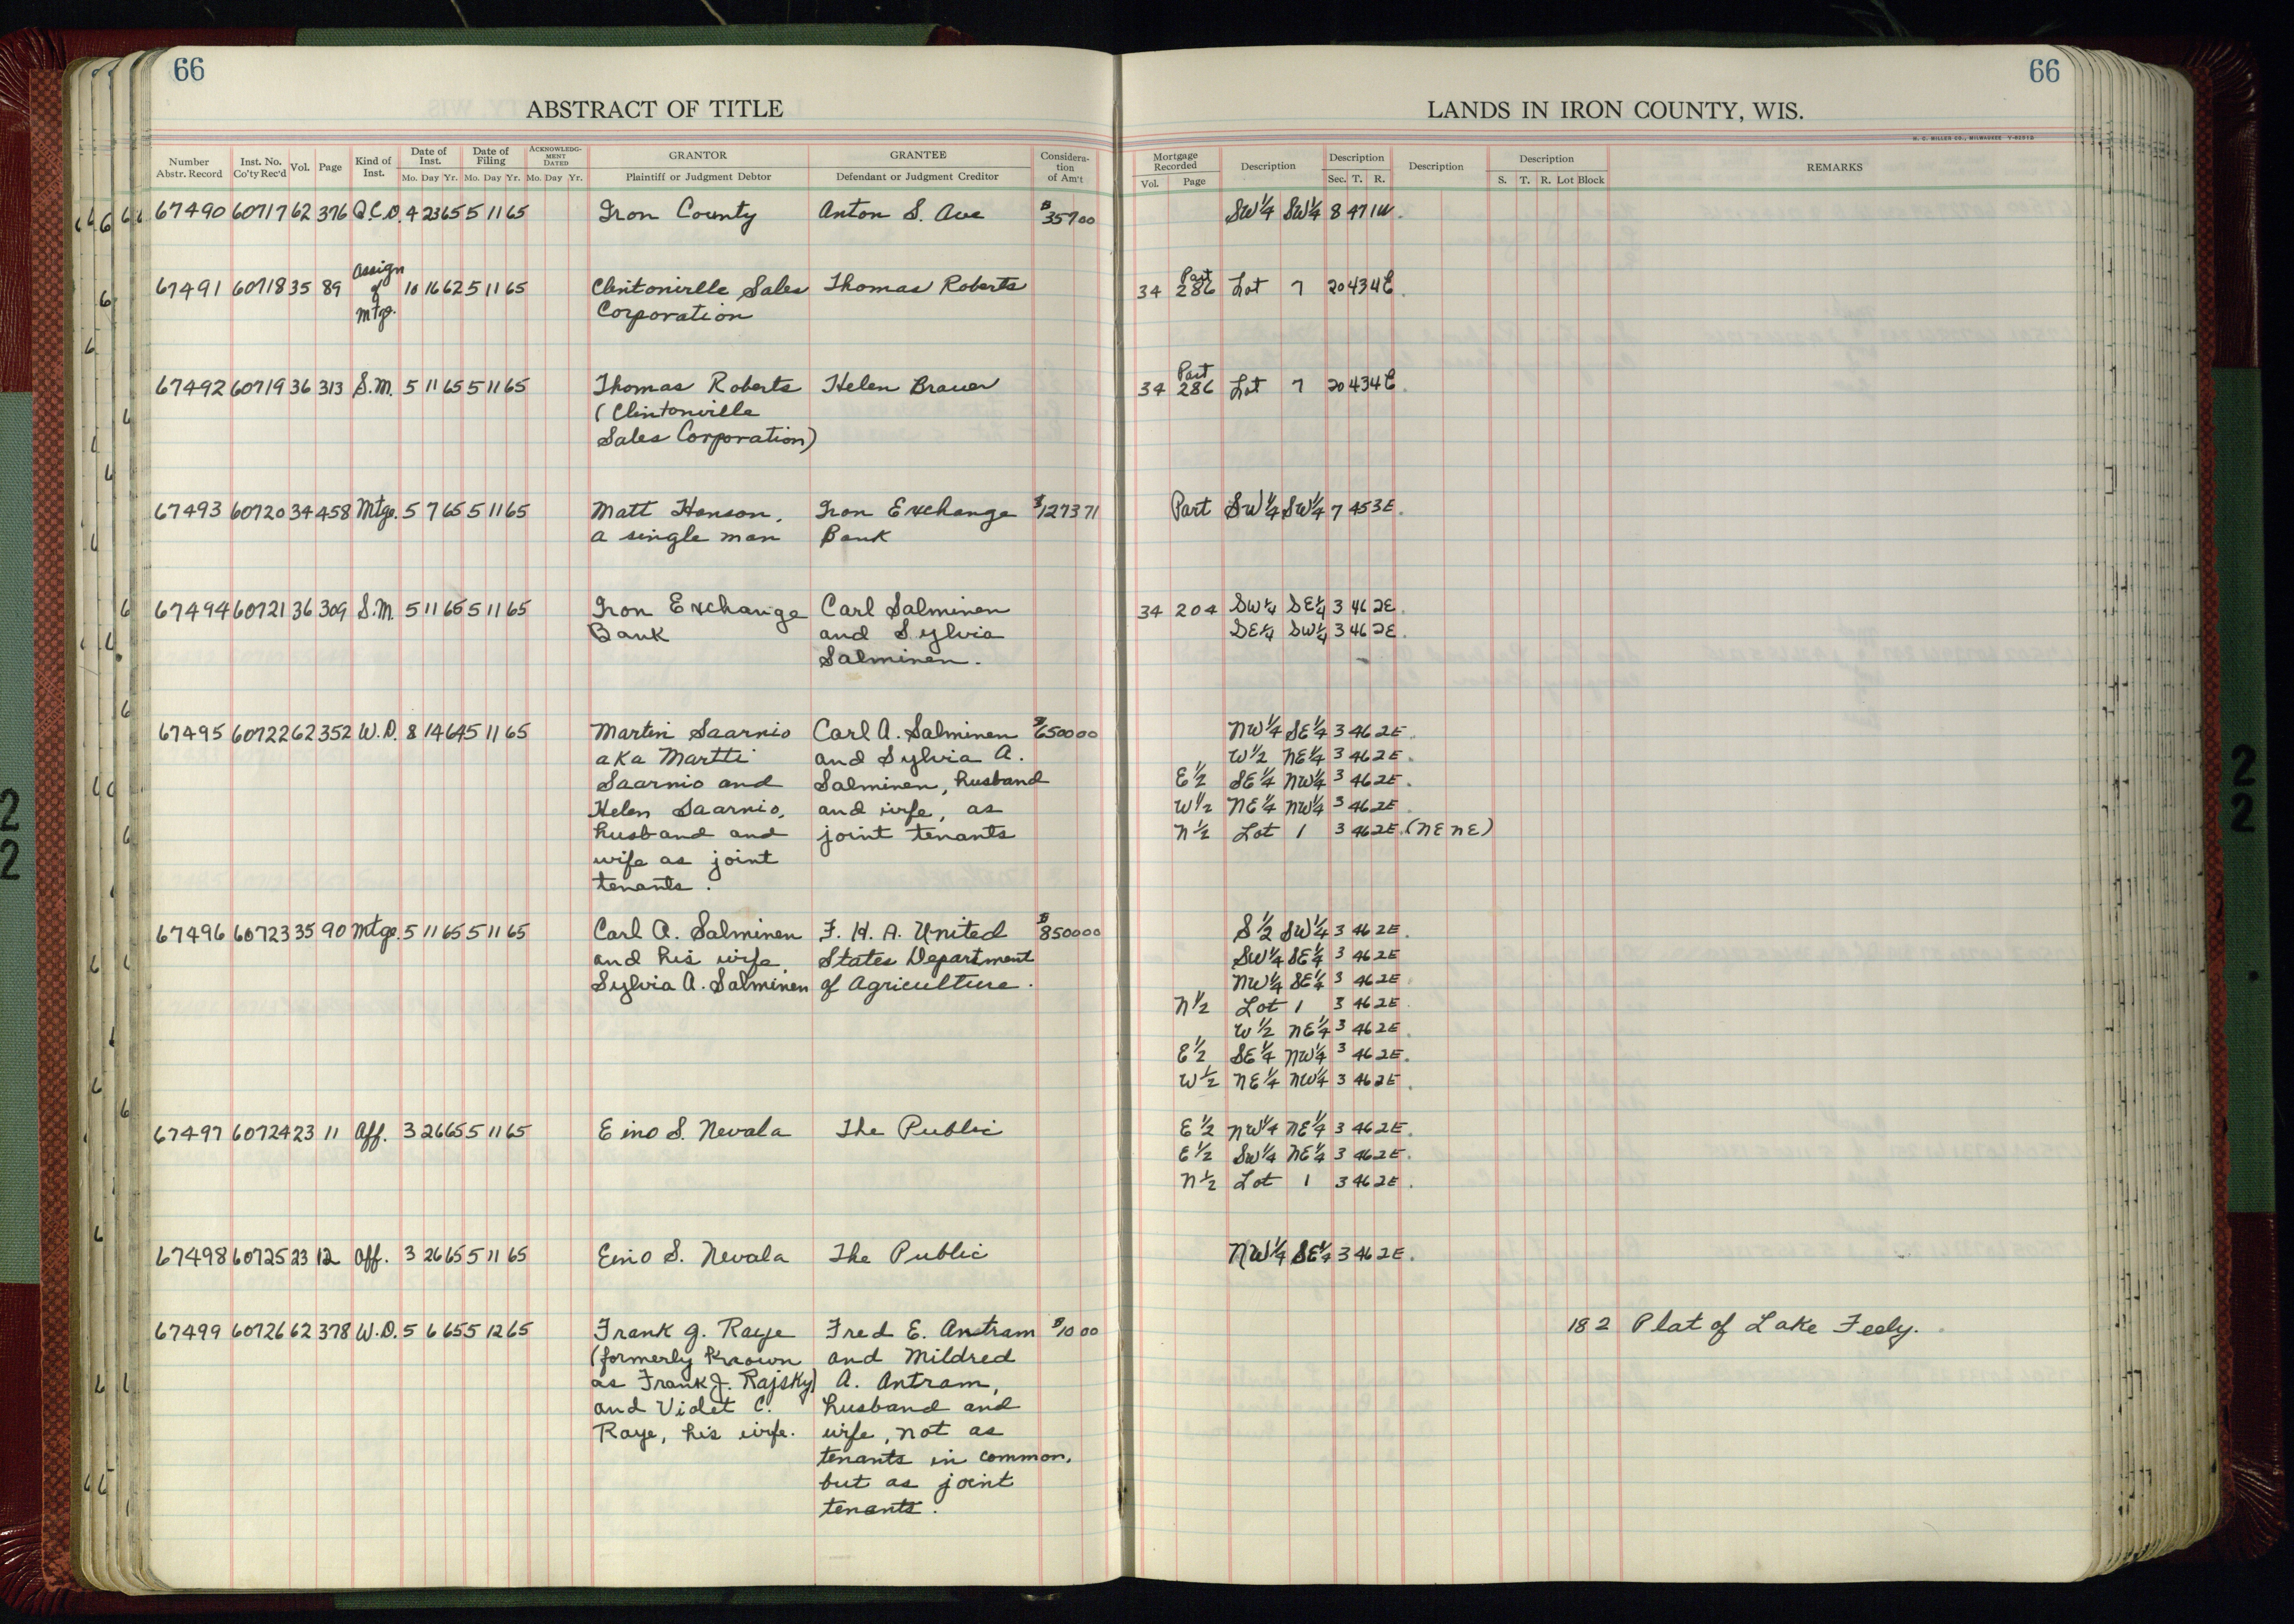 66
66
ABSTRACT OF TITLE
LANDS IN IRON COUNTY, WIS.
H. C. MILLER CO., MILWAUKEE
Number Abstr. Record | Inst. No. Co'ty Rec'd | Vol. | Page | Kind of Inst. | Date of Inst. Mo. Day Yr. | Date of Filing Mo. Day Yr. | ACKNOWLEDGMENT DATED Mo. Day Yr. | GRANTOR Plaintiff or Judgment Debtor | GRANTEE Defendant or Judgment Creditor | Consideration of Am't | Mortgage Recorded Vol. Page | Description | Description Sec. T. R. | Description | Description S. T. R. Lot Block | REMARKS
67490 60717 62 376 Q.C.D. 4 23 65 5 11 65 Iron County Anton S. Ave $357 00 SW¼ SW¼ 8 47 1W.
67491 60718 35 89 Assign of Mtge. 10 16 62 5 11 65 Clintonville Sales Thomas Roberts 34 286 Part Lot 7 20 43 4E.
Corporation
67492 60719 36 313 S.M. 5 11 65 5 11 65 Thomas Roberts Helen Brauer 34 286 Part Lot 7 20 43 4E.
(Clintonville
Sales Corporation)
67493 60720 34 458 Mtge. 5 7 65 5 11 65 Matt Honson, Iron Exchange $1273 71 Part SW¼ SW¼ 7 45 3E.
a single man Bank
67494 60721 36 309 S.M. 5 11 65 5 11 65 Iron Exchange Carl Salminen 34 204 SW¼ SE¼ 3 46 2E.
Bank and Sylvia SE¼ SW¼ 3 46 2E.
Salminen.
67495 60722 62 352 W.D. 8 14 64 5 11 65 Martin Saarnio Carl A. Salminen $6500 00 NW¼ SE¼ 3 46 2E.
aka Martti and Sylvia A. W½ NE¼ 3 46 2E.
Saarnio and Salminen, husband E½ SE¼ NW¼ 3 46 2E.
Helen Saarnio, and wife, as W½ NE¼ NW¼ 3 46 2E.
husband and joint tenants N½ Lot 1 3 46 2E. (NE NE)
wife as joint
tenants.
67496 60723 35 90 Mtge. 5 11 65 5 11 65 Carl A. Salminen F. H. A. United $8500 00 S½ SW¼ 3 46 2E.
and his wife, States Department SW¼ SE¼ 3 46 2E
Sylvia A. Salminen of Agriculture. NW¼ SE¼ 3 46 2E
N½ Lot 1 3 46 2E
W½ NE¼ 3 46 2E
E½ SE¼ NW¼ 3 46 2E.
W½ NE¼ NW¼ 3 46 2E.
67497 60724 23 11 Aff. 3 26 65 5 11 65 Eino S. Nevala The Public E½ NW¼ NE¼ 3 46 2E.
E½ SW¼ NE¼ 3 46 2E.
N½ Lot 1 3 46 2E.
67498 60725 23 12 Aff. 3 26 65 5 11 65 Eino S. Nevala The Public NW¼ SE¼ 3 46 2E.
67499 60726 62 378 W.D. 5 6 65 5 12 65 Frank J. Raye Fred E. Anstram $10 00 18 2 Plat of Lake Feely.
(formerly known and Mildred
as Frank J. Rajsky) A. Antram,
and Violet C. husband and
Raye, his wife. wife, not as
tenants in common,
but as joint
tenants.